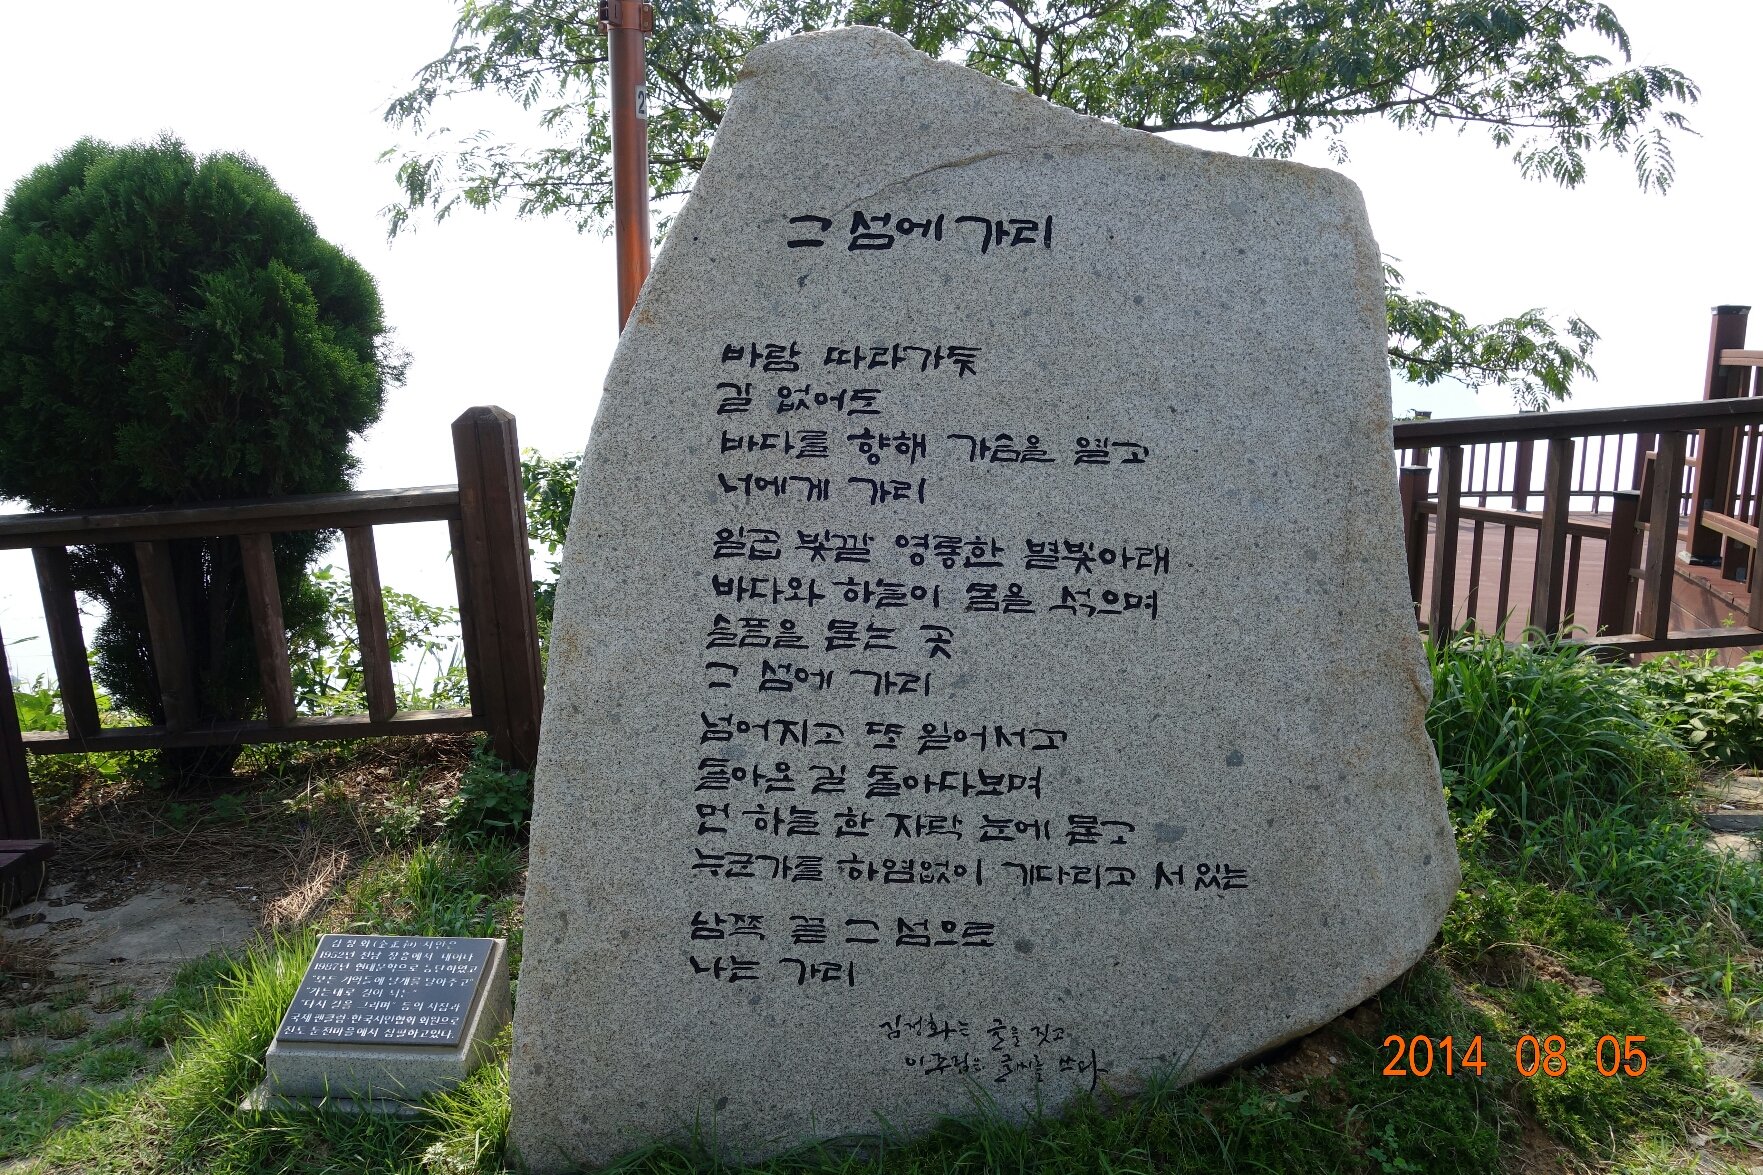 그 섬에 가리
바람 따라가듯
길 없어도
바다를 향해 가슴을 열고
너에게 가리
일곱 빛깔 영롱한 별빛아래
바다와 하늘이 몸을 섞으며
슬픔을 묻는 곳
그 섬에 가리
넘어지고 또 일어서고
돌아온 길 돌아다보며
먼 하늘 한 자락 눈에 묻고
누군가를 하염없이 기다리고 서 있는
남쪽 끝 그 섬으로
나는 가리
김정화는 글을 짓고
글씨를 쓰다
김정화 시인은
1952년 전남 장흥에서 태어나
1987년 현대문학으로 등단하였고
"모든 기억들에 날개를 달아주고"
"가는대로 길이 되는"
"다시 길을 그리며" 등의 시집과
국제펜클럽·한국시인협회 회원으로
진도 돈전마을에서 집필하고있다.
2
2014 08 05